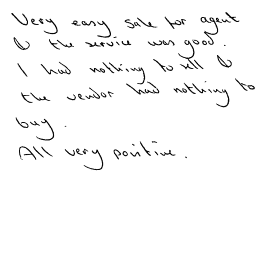 Very easy sale for agent
& the service was good.
I had nothing to sell &
the vendor had nothing to
buy.
All very positive.